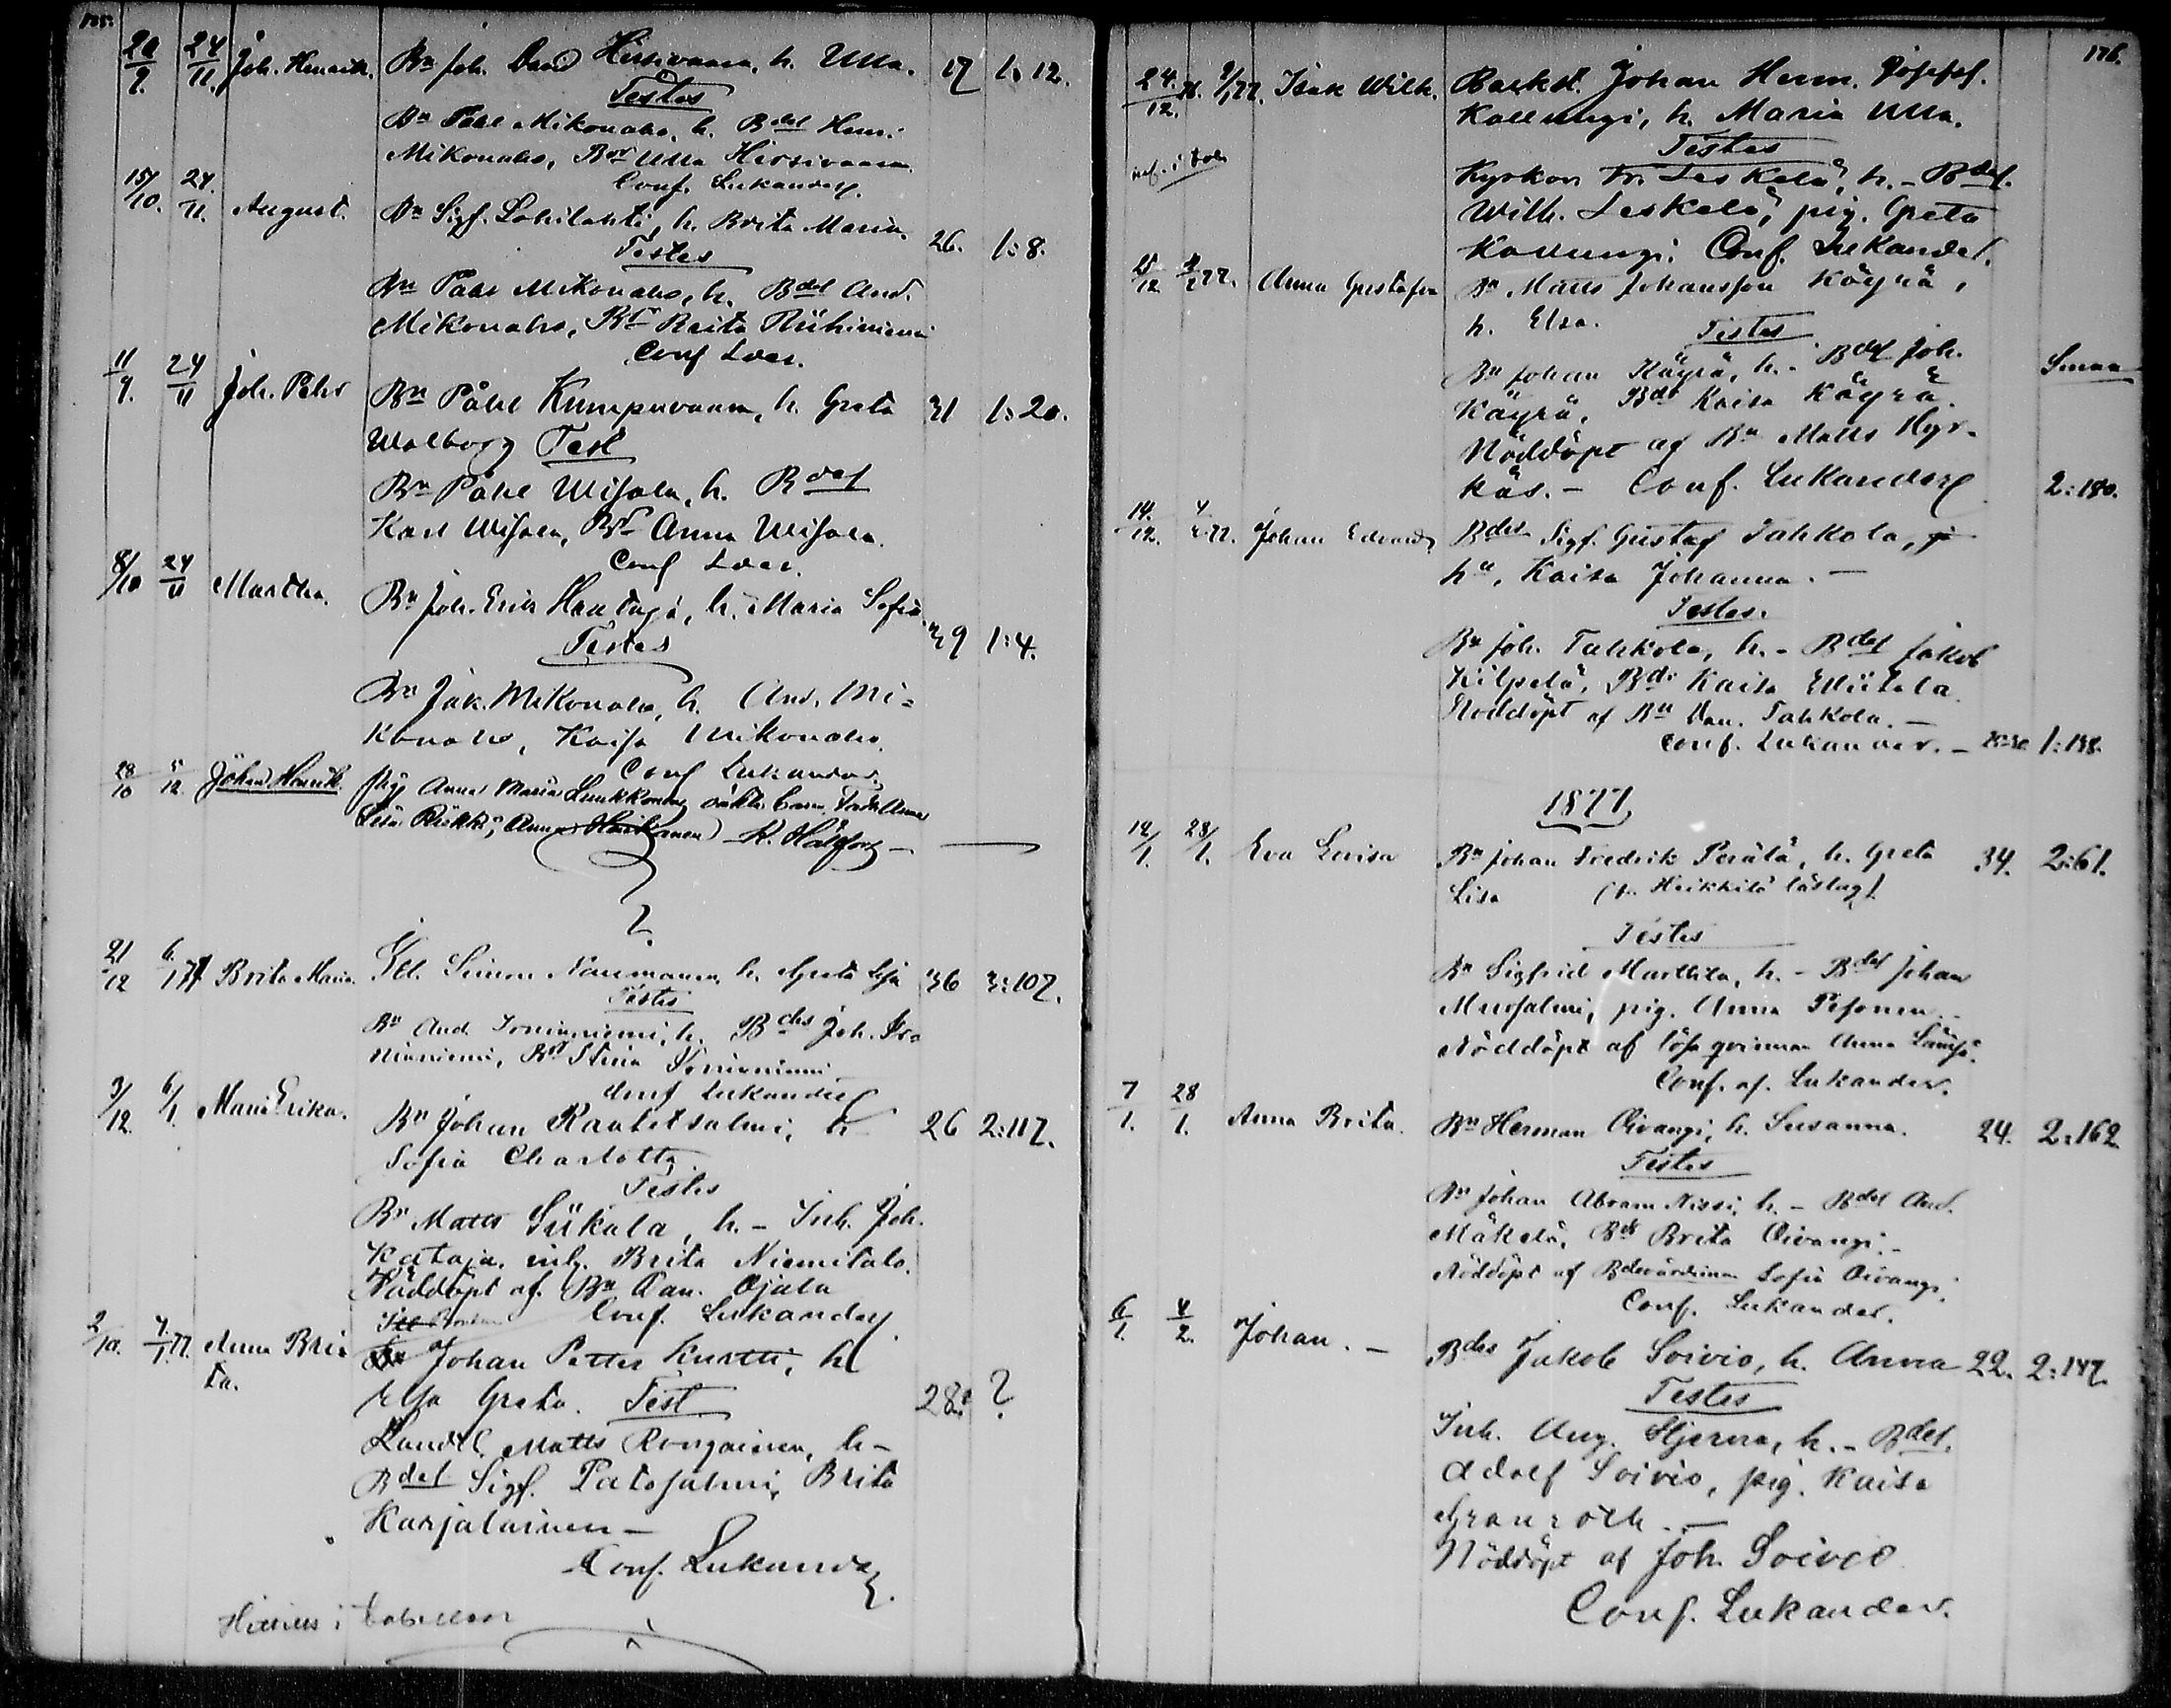 175.
20/9. 24/11. Joh. Henrik. Bn Joh. Hirsivaara, h. Ulla. 17 1:12.
Testes
Bn Påhl Mikonaho, h. Bdes Henr.
Mikonaho, Bdr Ulla Hirsivaara
Conf. Lukander.
15/10. 24/11. August. Bn Sigf. Lohilahti, h. Brita Maria. 26. 1:8.
Testes
Bn Påhl Mikonaho, h. Bdes And.
Mikonaho, Bdr Brita Riihiniemi
Conf Lder.
11/9. 24/11 Joh. Pehr Bn Påhl Kumpuvaara, h. Greta 31 1:20.
Walborg Test
Bn Påhl Wisala, h. Bdes
Karl Wisala, Bdr Anna Wisala.
Conf Lder.
8/10 24/11 Martha. Bn Joh. Erik Hautajä, h. Maria Sofia. 39 1:4.
Testes
Bn Jak. Mikonaho, h. And. Mi=
konaho, Kaisa Mikonaho.
Conf Lukander.
28/10 5/12 Johan Henrik. pig Anna Maria Lukkonen
Lisa Anna
?
21/12 6/1 77 Brita Maria. Itl. Simon Naumanen, h. Greta Lisa 36 3:107.
Testes
Bn And. Irninniemi, h. Bdes Joh. Ir=
ninniemi, Bdr Stina Irninniemi
Conf Lukander
3/12. 6/1. Maria Erika. Bn Johan Rautetsalmi, h 26 2:117.
Sofia Charlotta.
Testes
Bn Matts Siikala, h. - Inh. Joh.
Kataja, inh. Brita Niemitalo.
Nöddöpt af. Bn Dan. Ojala
Conf. Lukander.
2/10. 7/1.77. Anna Bri
ta. Johan Petter Kurtti, h
Elsa Greta. Test 28. ?
Landtl. Matts Rongainen, h -
Bdes Sigf. Patosalmi, Brita
Karjalainen -
Conf. Lukander.
Hittills i tabellen
176.
24/12. 76. 77. Isak Wilh. Backst. Johan Herm. Josefss.
Kallungi, h. Maria Ulla.
Testes
Kyrkov Fr. Leskelä, h. - Bdes.
Wilh. Leskelä, pig. Greta
Kallungi. Conf. Lukander.
25/12 77. Anna Gustafva Bn Matts Johansson Käyrä,
h. Elsa. Testes
Bn Johan Käyrä, h. - Bdes Joh.
Käyrä, Bdr Kaisa Käyrä.
Nöddöpt af Bn Matts Hyr-
käs. - Conf. Lukander 2:180.
14./12. 4/2.77. Johan Edvard Bdes Sigf. Gustaf Tahkola,
hu, Kaisa Johanna. -
Testes.
Bn Joh. Tahkola, h. - Bdes Jakob
Kilpelä, Bdr Kaisa Eliitala.
Nöddöpt af Bn Dan. Tahkola. -
Conf. Lukander. - 1:198.
1877
12/1. 28/1. Eva Lovisa Bn Johan Fredrik Perälä, h. Greta 34. 2:61.
Lisa (v. Heikkilä läslag).
Testes
Bn Sigfrid Marttila, h. - Bdes Johan
Mursalmi, pig. Anna Pesonen. -
Nöddöpt af lösa qvinnan Anna Lämsä.
Conf. af. Lukander.
7/1. 28/1. Anna Brita. Bn Herman Oivangi, h. Susanna. 24. 2:162
Testes
Bn Johan Abram Nissi, h. - Bdes And.
Mäkelä, Bdr Brita Oivangi. -
Nöddöpt af Bdevärdinnan Sofia Oivangi.
Conf. Lukander.
6/1. 4/2. Johan. - Bdes Jakob Soivio, h. Anna 22. 2:147.
Testes
Inh. Aug. Stjerna, h. - Bdes.
Adolf Soivio, pig. Kaisa
Granroth. -
Nöddöpt af Joh. Soivio
Conf. Lukander.